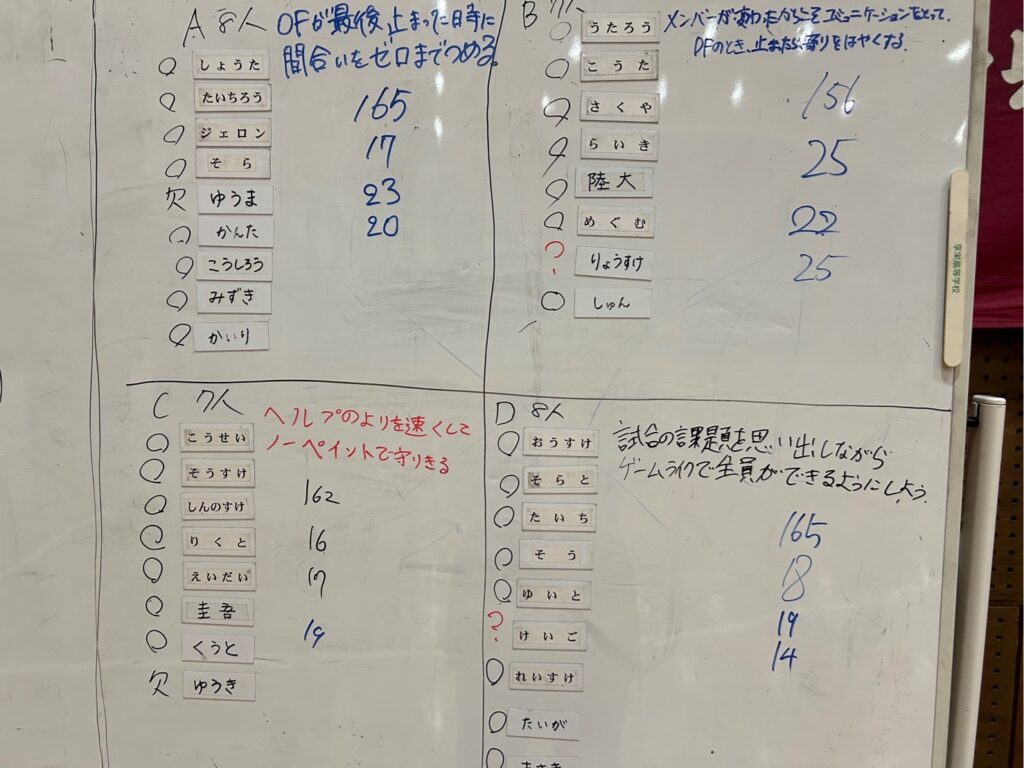 A 8人
OFが最後、止まった時に
間合いをゼロまでつめる。
○ しょうた
○ たいちろう
○ ジェロン
○ そら
欠 ゆうま
○ かんた
○ こうしろう
○ みずき
○ かいり
165
17
23
20
B 7人
メンバーが変わったからこそコミュニケーションをとって、
DFのとき、止まったら、寄りをはやくする。
○ うたろう
○ こうた
○ さくや
○ らいき
○ 陸大
○ めぐむ
? りょうすけ
○ しゅん
156
25
22
25
享栄高等学校
C 7人
ヘルプのよりを速くして
ノーペイントで守りきる
○ こうせい
○ そうすけ
○ しんのすけ
○ りくと
○ えいだい
○ 圭吾
○ くうと
欠 ゆうき
162
16
17
19
D 8人
試合の課題を思い出しながら
ゲームライクで全員ができるようにしよう。
○ おうすけ
○ そらと
○ たいち
○ そう
○ ゆいと
? けいご
○ れいすけ
○ たいが
165
18
19
14